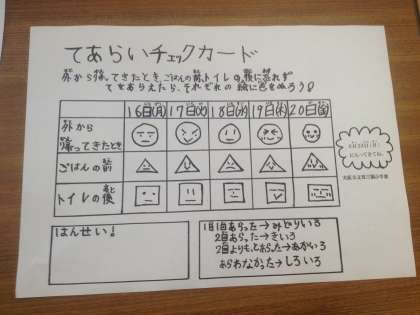 てあらいチェックカード
外から帰ってきたとき、ごはんの前、トイレの後に忘れず
てをあらえたら、それぞれの絵に色をぬろう!
16日(月) 17日(火) 18日(水) 19日(木) 20日(金)
外から
帰ってきたとき
ごはんの前
トイレの後
はんせい!
1日1回あらった→みどりいろ
2回あらった→きいろ
2回よりも、おおかった→あかいろ
あらわなかった→しろいろ